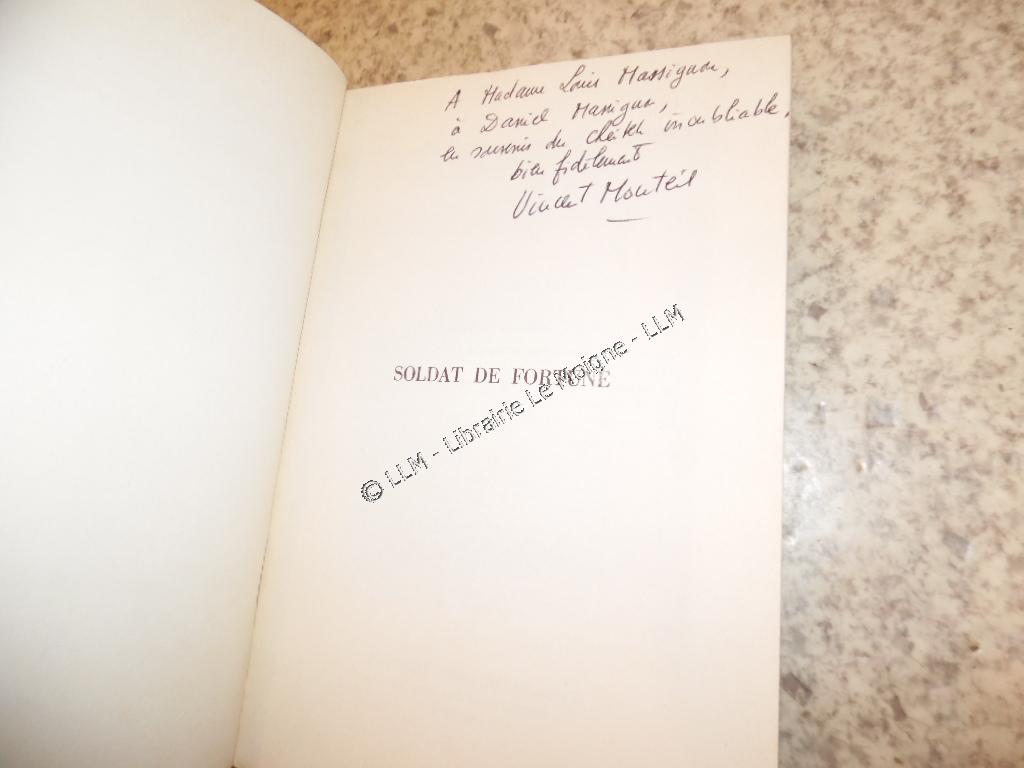 A Madame Louis Massignon,
à Daniel Massignon,
en souvenir du cheikh inoubliable,
bien fidèlement
Vincent Monteil
SOLDAT DE FORTUNE
© LLM - Librairie Le Moigne - LLM